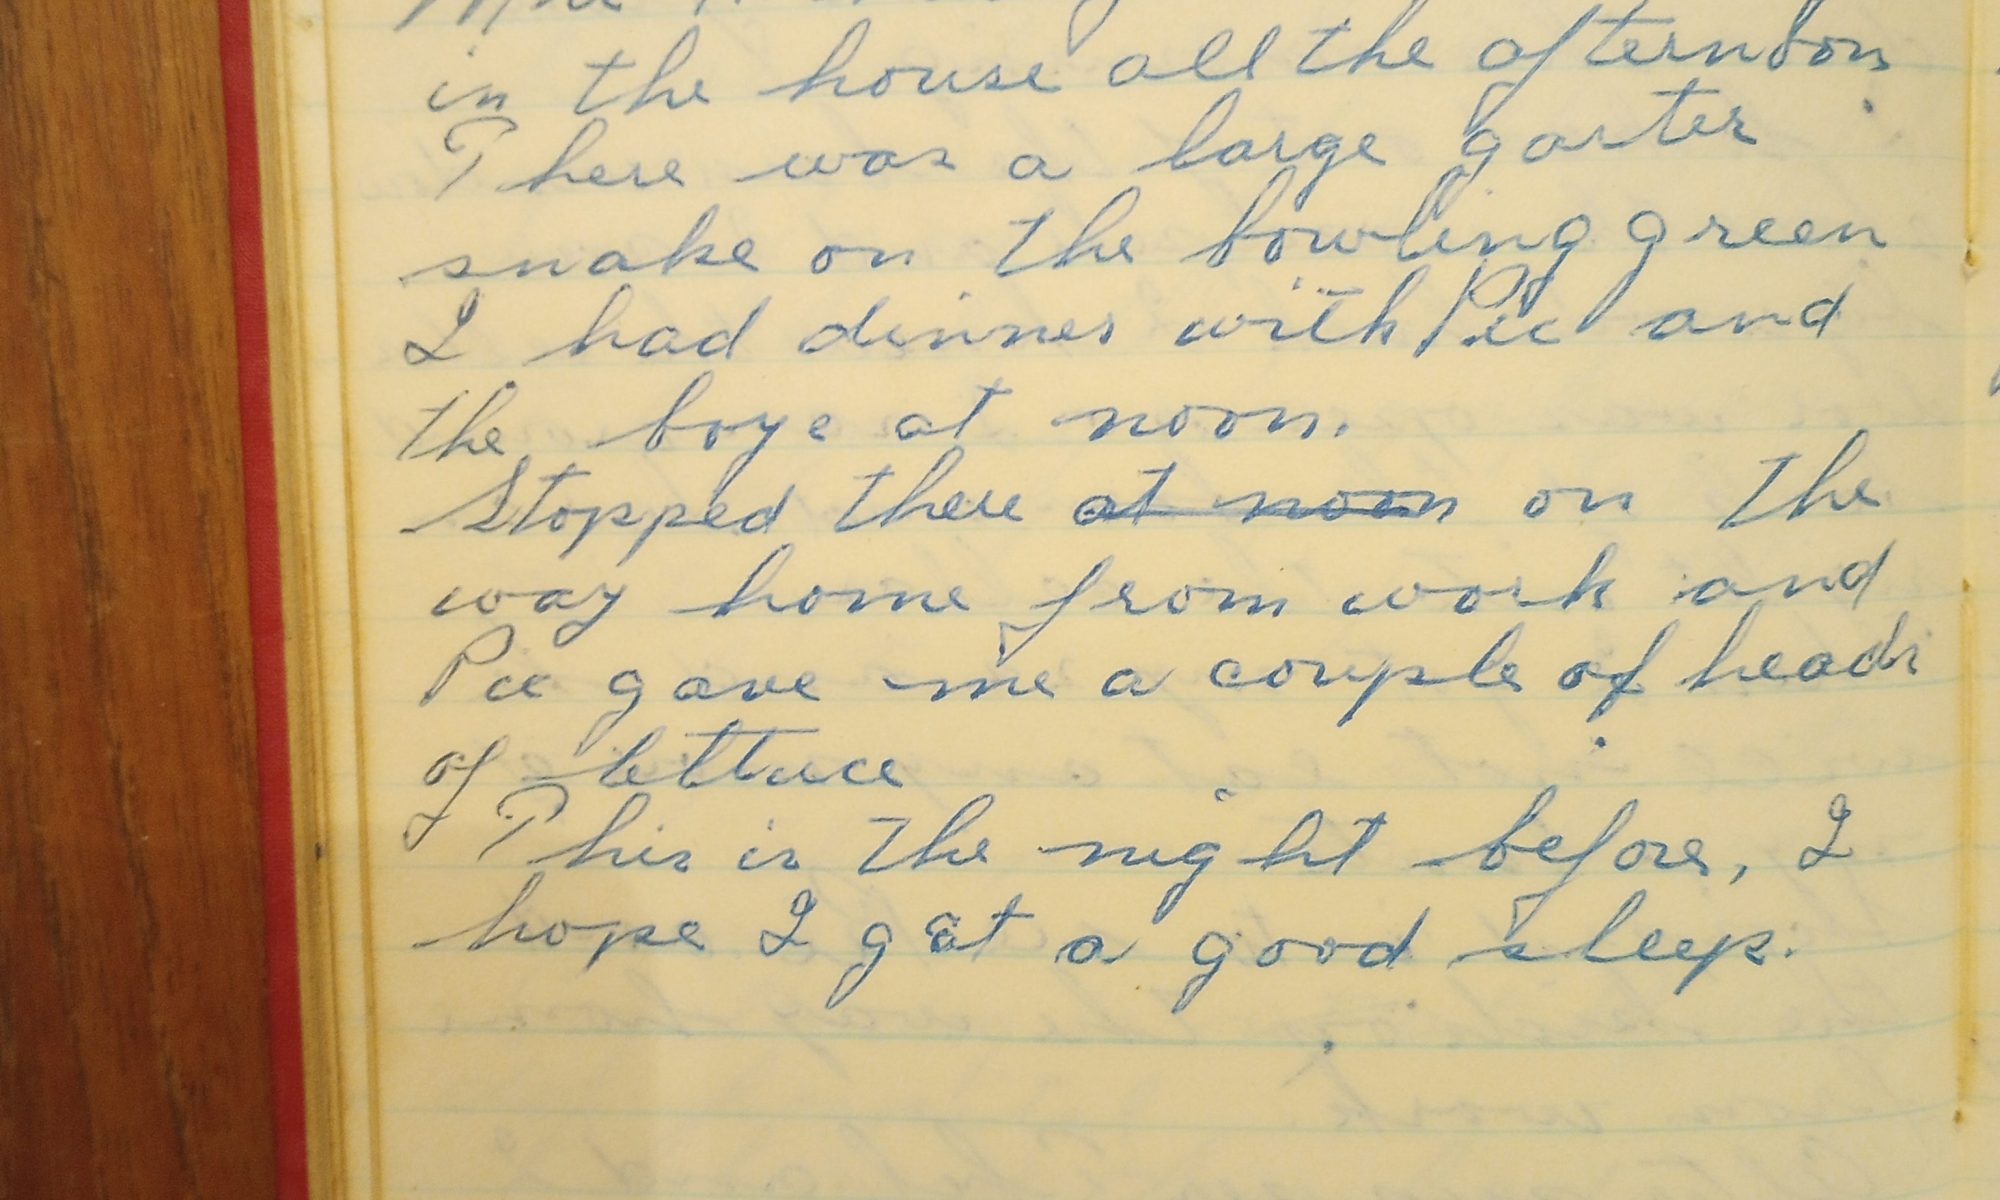 in the house all the afternoon.
There was a large garter
snake on the bowling green
I had dinner with Pic and
the boys at noon.
Stopped there at noon on the
way home from work and
Pic gave me a couple of heads
of lettuce
This is the night before, I
hope I get a good sleep.